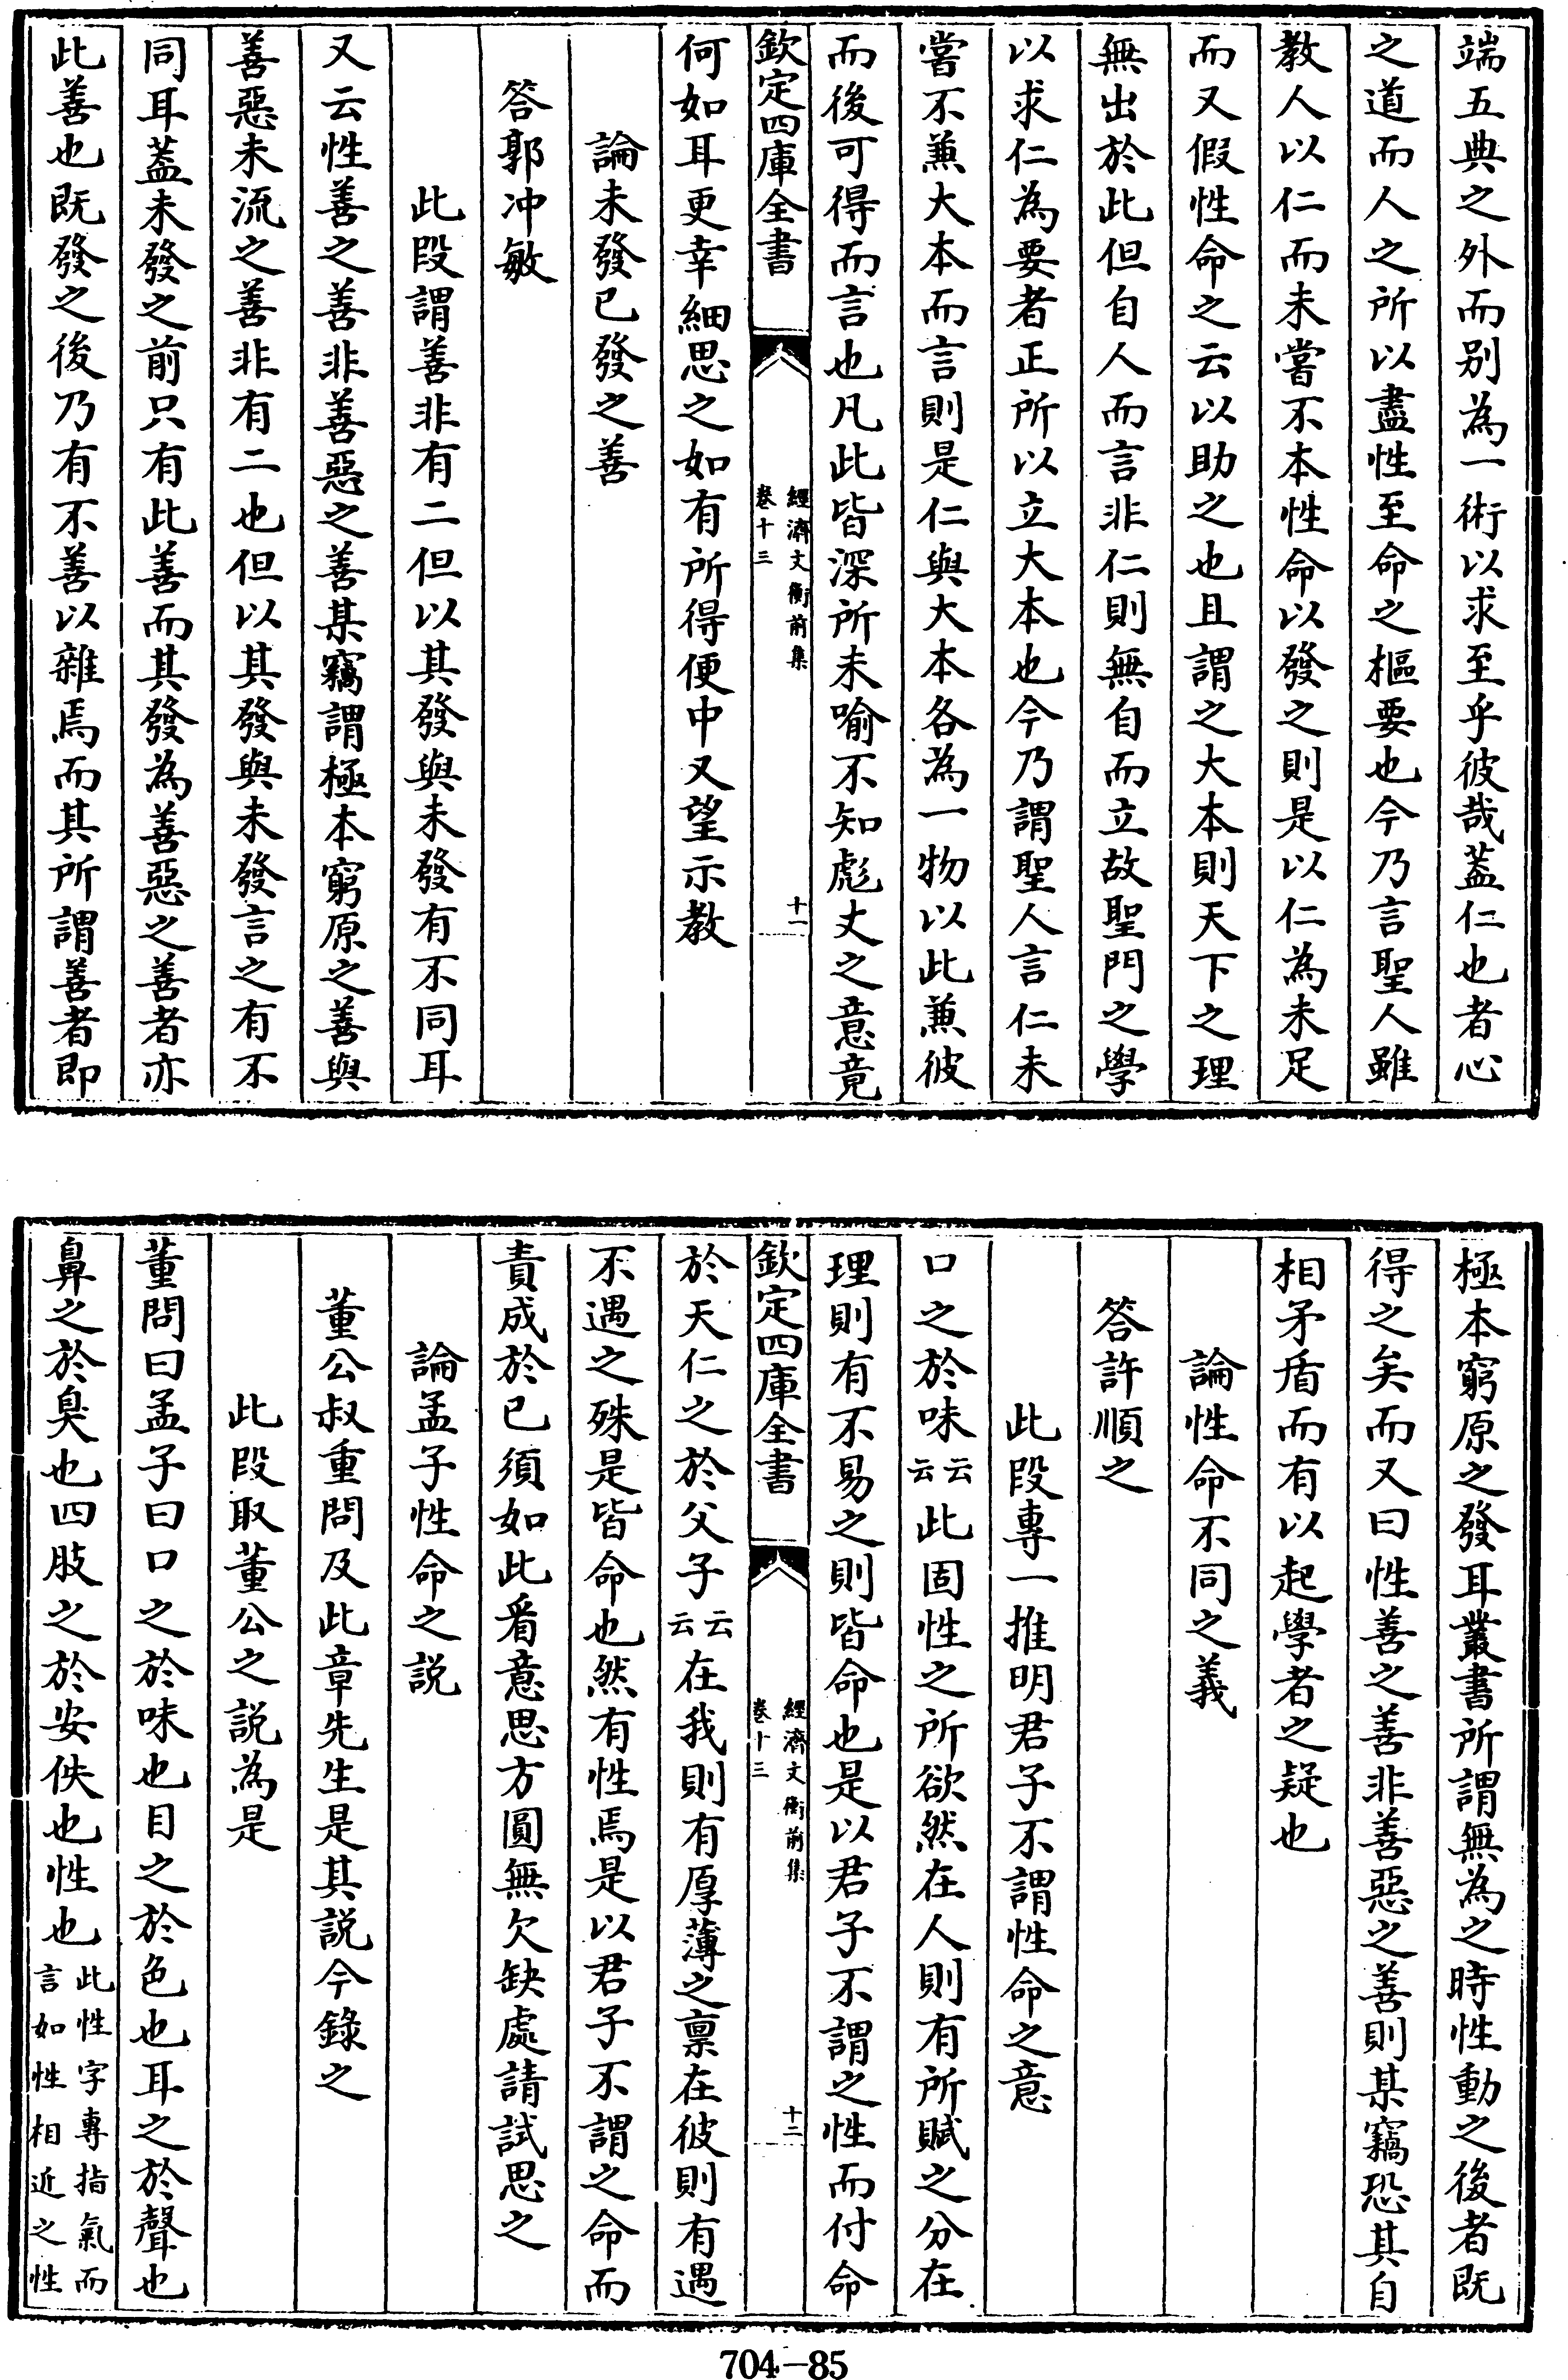 端五典之外而别為一術以求至乎彼哉葢仁也者心
之道而人之所以盡性至命之樞要也今乃言聖人雖
教人以仁而未嘗不本性命以發之則是以仁為未足
而又假性命之云以助之也且謂之大本則天下之理
無出於此但自人而言非仁則無自而立故聖門之學
以求仁為要者正所以立大本也今乃謂聖人言仁未
嘗不兼大本而言則是仁與大本各為一物以此兼彼
而後可得而言也凡此皆深所未喻不知彪丈之意竟
欽定四庫全書
經濟文衡前集
卷十三
十一
何如耳更幸細思之如有所得便中又望示教
論未發已發之善
答郭冲敏
此段謂善非有二但以其發與未發有不同耳
又云性善之善非善惡之善某竊謂極本窮原之善與
善惡未流之善非有二也但以其發與未發言之有不
同耳葢未發之前只有此善而其發為善惡之善者亦
此善也既發之後乃有不善以雜焉而其所謂善者即
極本窮原之發耳叢書所謂無為之時性動之後者既
得之矣而又曰性善之善非善惡之善則某竊恐其自
相矛盾而有以起學者之疑也
論性命不同之義
答許順之
此段專一推明君子不謂性命之意
口之於味云云此固性之所欲然在人則有所賦之分在
理則有不易之則皆命也是以君子不謂之性而付命
欽定四庫全書
經濟文衡前集
卷十三
十二
於天仁之於父子云云在我則有厚薄之禀在彼則有遇
不遇之殊是皆命也然有性焉是以君子不謂之命而
責成於已須如此看意思方圓無欠缺處請試思之
論孟子性命之説
董公叔重問及此章先生是其説今錄之
此段取董公之説為是
董問曰孟子曰口之於味也目之於色也耳之於聲也
鼻之於臭也四肢之於安佚也性也此性字專指氣而
言如性相近之性
704—85